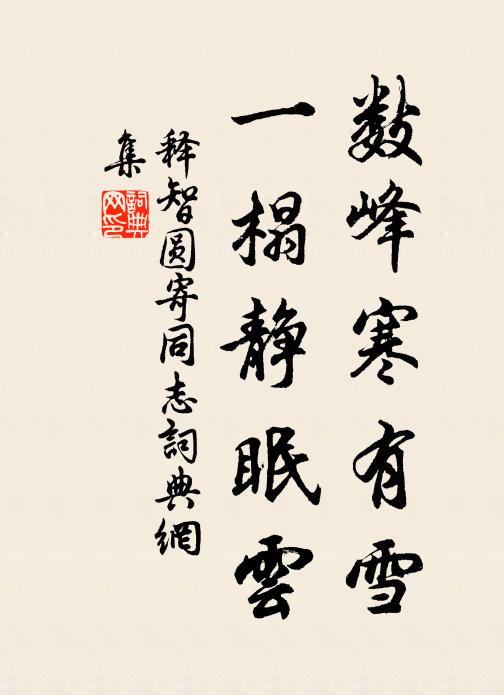 数峰寒有雪
一榻静眠雲
释智圆寄同志詞典網
集
詞典网印